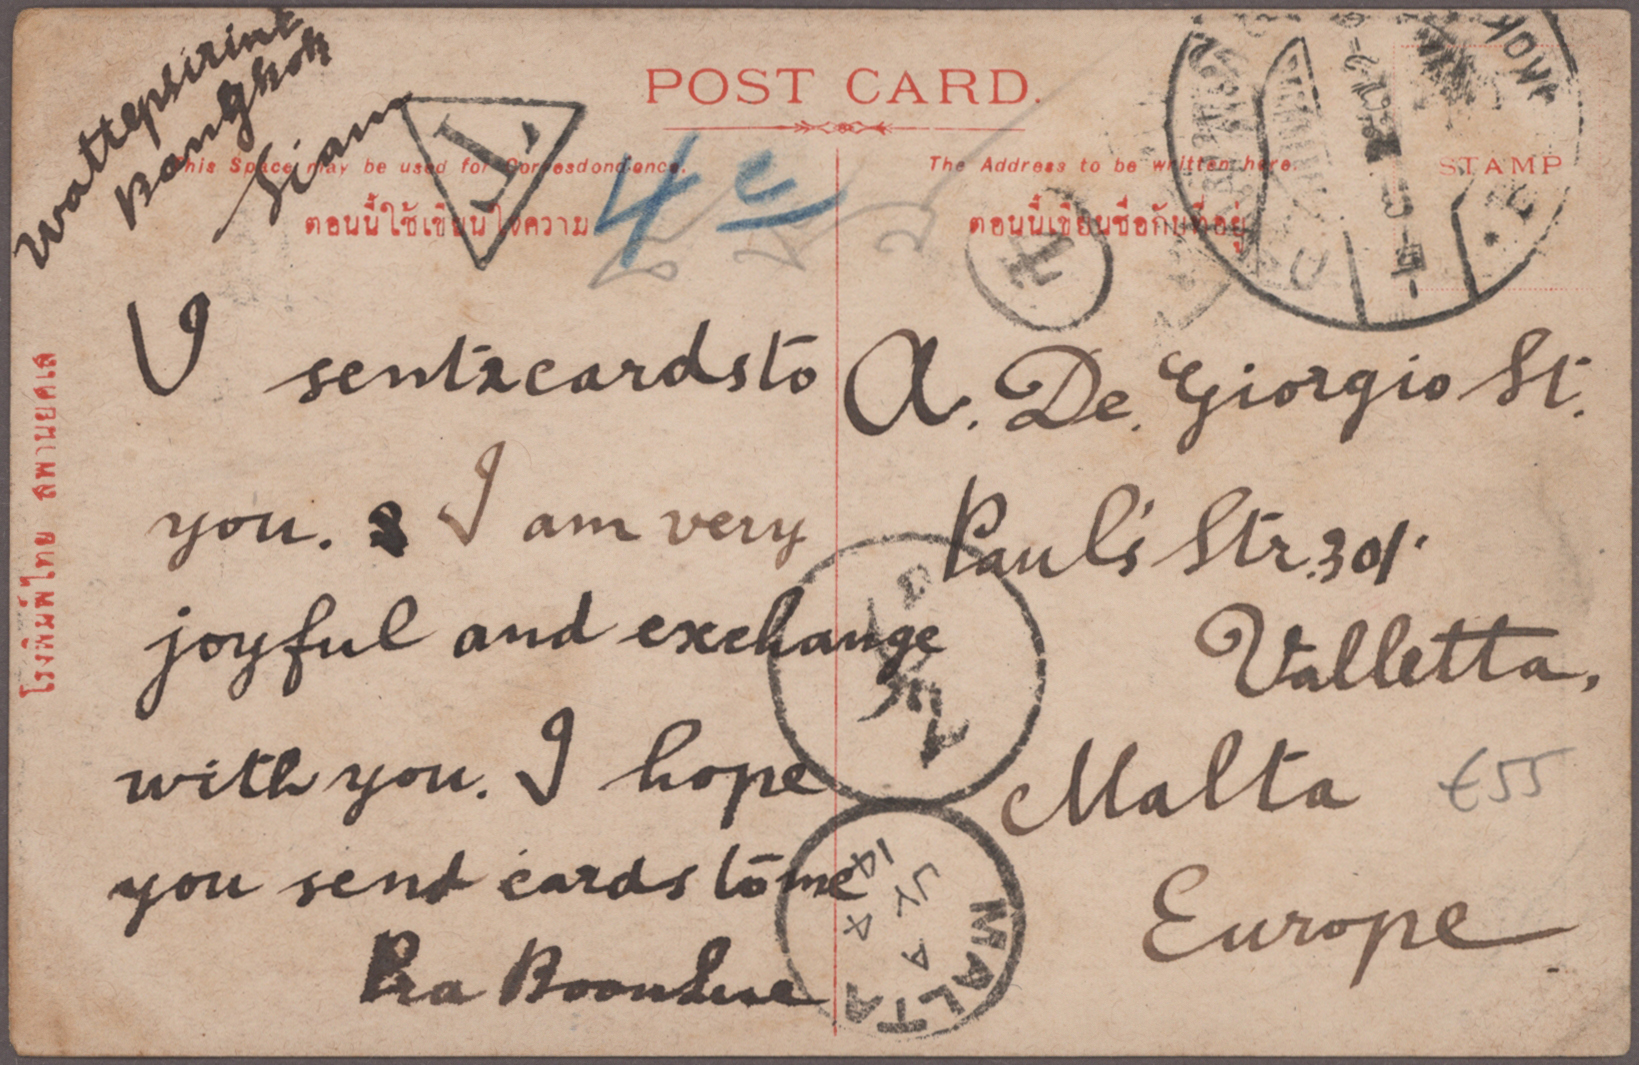 Wattepsirint
Bangkok
Siam
POST CARD.
This Space may be used for Corresdondence.
The Address to be written here.
STAMP
ตอนนี้ใช้เขียนใจความ
ตอนนี้เขียนชื่อกับที่อยู่
T
4 c
T
I sent 2 cards to
you. I am very
joyful and exchange
with you. I hope
you send cards to me
Pra
A. De. Giorgio St.
Paul's Str. 301.
Valletta,
Malta
Europe
€55
MALTA
JY 4
14
A
โรงพิมพ์ไทย สพานยศเส